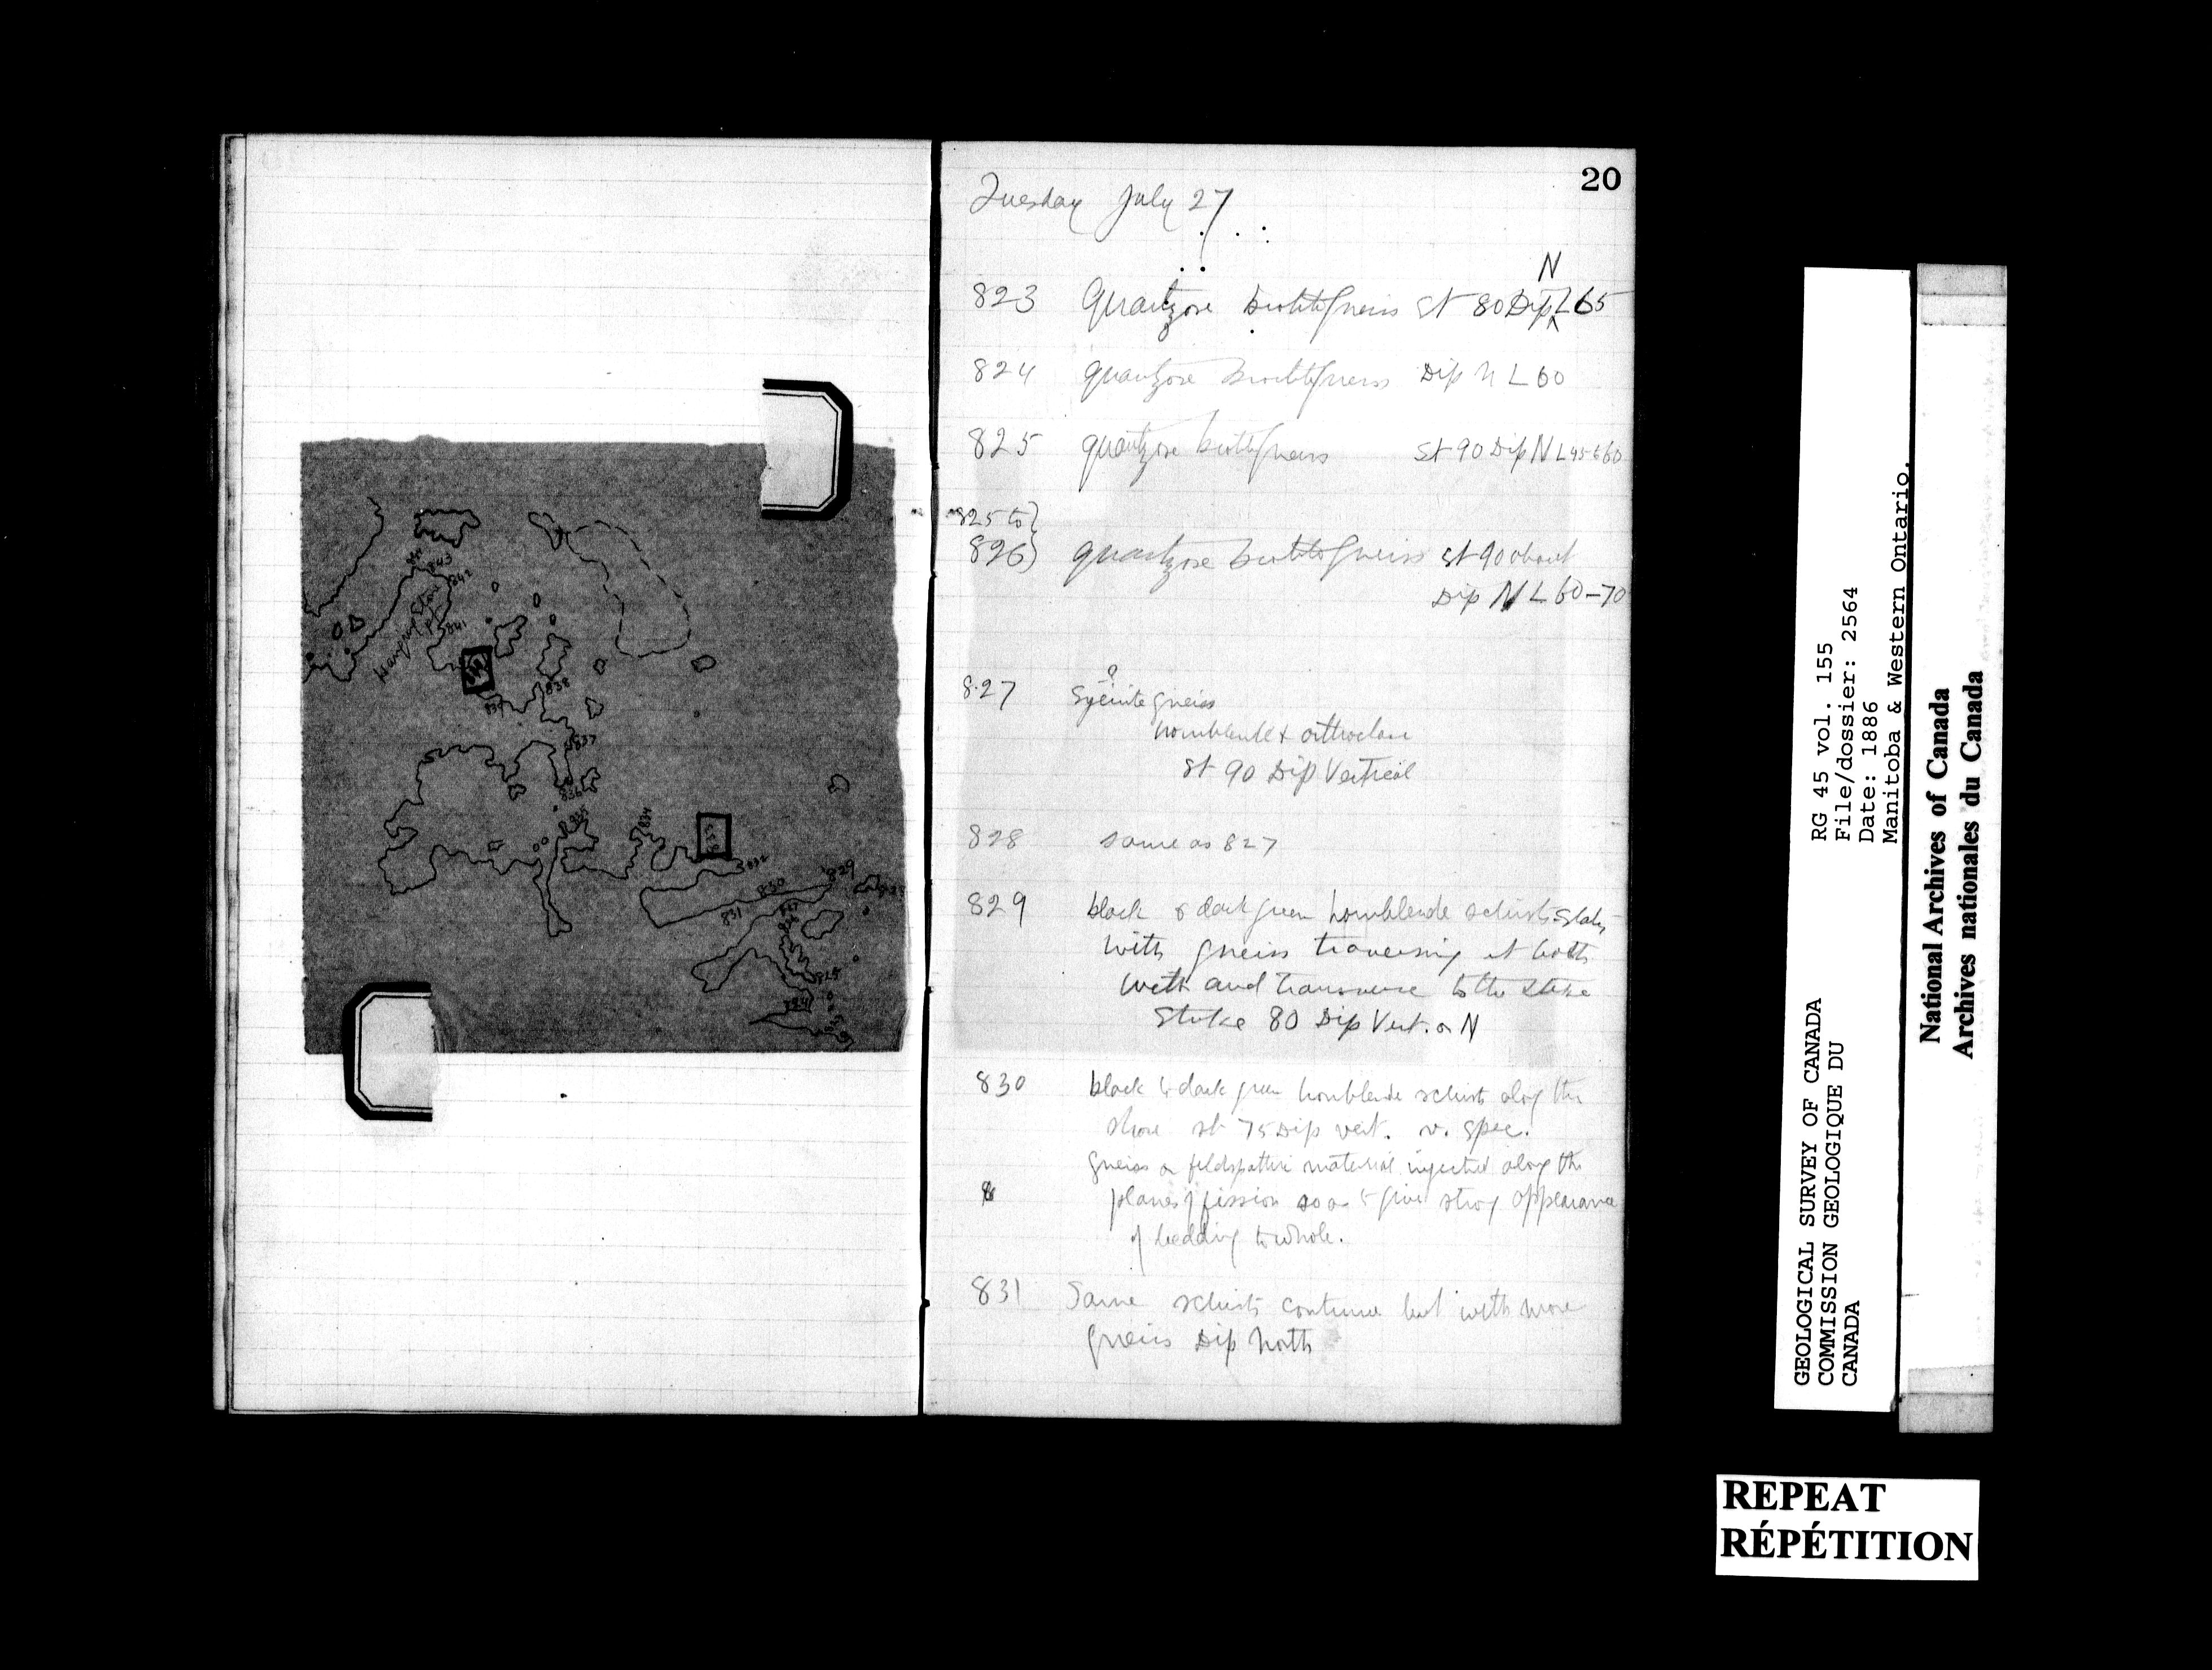 20
Tuesday July 27
N
823 Quartzose biotite gneiss St 80 Dip ∧ L 65
824 quartzose biotite gneiss Dip N L 60
825 quartzose biotite gneiss St 90 Dip N L 45 to 60
825 to }
826 } quartzose biotite gneiss St 90 about
Dip N L 60-70
?
827 Syenite gneiss
hornblende & orthoclase
St 90 Dip Vertical
828 same as 827
829 black & dark green hornblende schists
with gneiss traversing it both
with and transverse to the strike
Strike 80 Dip Vert. or N
830 black to dark green hornblende schists along the
shore st 75 Dip vert. v. spec.
gneiss or feldspathic material injected along the
planes of fission so as to give strong appearance
of bedding to whole.
831 Same schists continue but with more
gneiss Dip North
843
842
841
838
839
837
836
835
834
832
829
830
831
825
824
GEOLOGICAL SURVEY OF CANADA
COMMISSION GEOLOGIQUE DU
CANADA
RG 45 vol. 155
File/dossier: 2564
Date: 1886
Manitoba & Western Ontario.
National Archives of Canada
Archives nationales du Canada
REPEAT
RÉPÉTITION